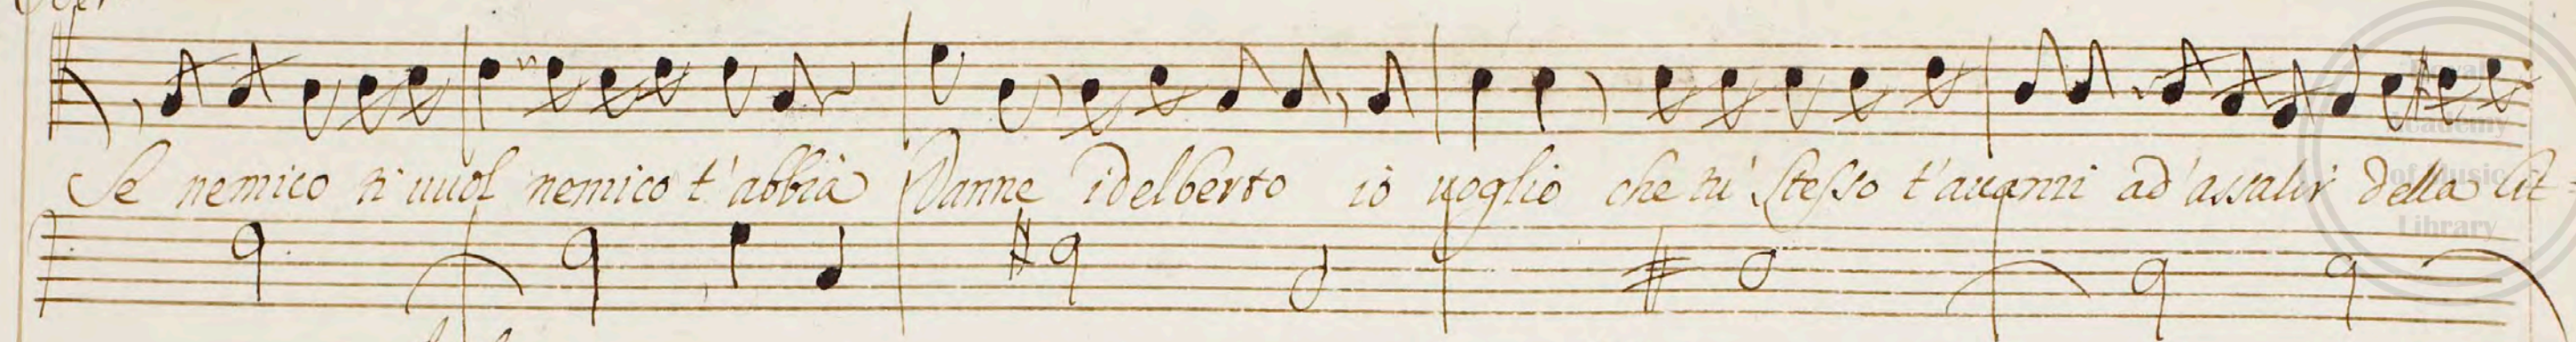 Se nemico ti uuol nemico t'abbia Vanne idelberto io uoglio che tu' stesso t'auanzi ad'assalir della Cit-
Royal
Academy
of Music
Library